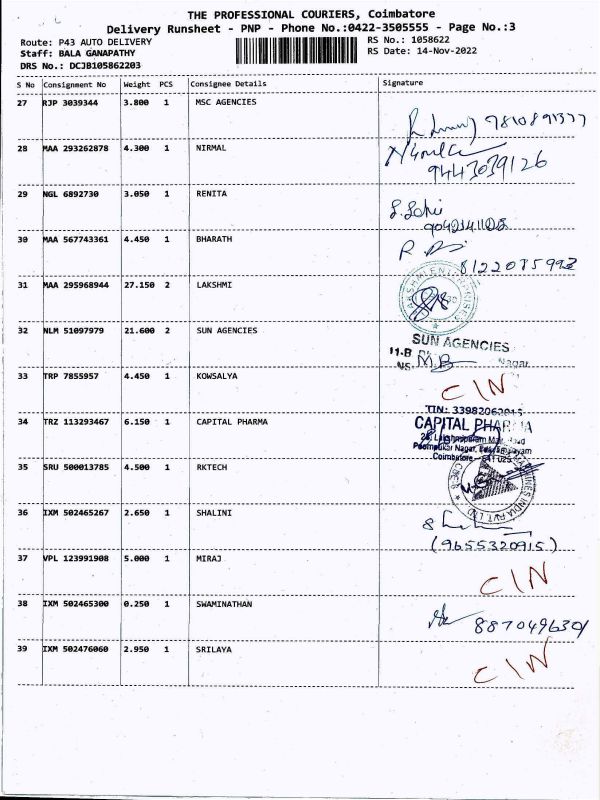 THE PROFESSIONAL COURIERS, Coimbatore
Delivery Runsheet - PNP - Phone No.:0422-3505555 - Page No.:3
Route: P43 AUTO DELIVERY
RS No.: 1058622
Staff: BALA GANAPATHY
RS Date: 14-Nov-2022
DRS No.: DCJB105862203
S No Consignment No Weight PCS Consignee Details Signature
27 RJP 3039344 3.800 1 MSC AGENCIES
9810891377
28 MAA 293262878 4.300 1 NIRMAL
9443039126
29 NGL 6892730 3.050 1 RENITA
30 MAA 567743361 4.450 1 BHARATH
8122085993
31 MAA 295968944 27.150 2 LAKSHMI
32 NLM 51097979 21.600 2 SUN AGENCIES
SUN AGENCIES
11-B
Nagar
33 TRP 7855957 4.450 1 KOWSALYA
C/N
34 TRZ 113293467 6.150 1 CAPITAL PHARMA
TIN: 33982062015
CAPITAL PHARMA
Coimbatore - 641 025
35 SRU 500013785 4.500 1 RKTECH
36 IXM 502465267 2.650 1 SHALINI
(9655320915)
37 VPL 123991908 5.000 1 MIRAJ
C/N
38 IXM 502465300 0.250 1 SWAMINATHAN
8870496301
39 IXM 502476060 2.950 1 SRILAYA
C/N